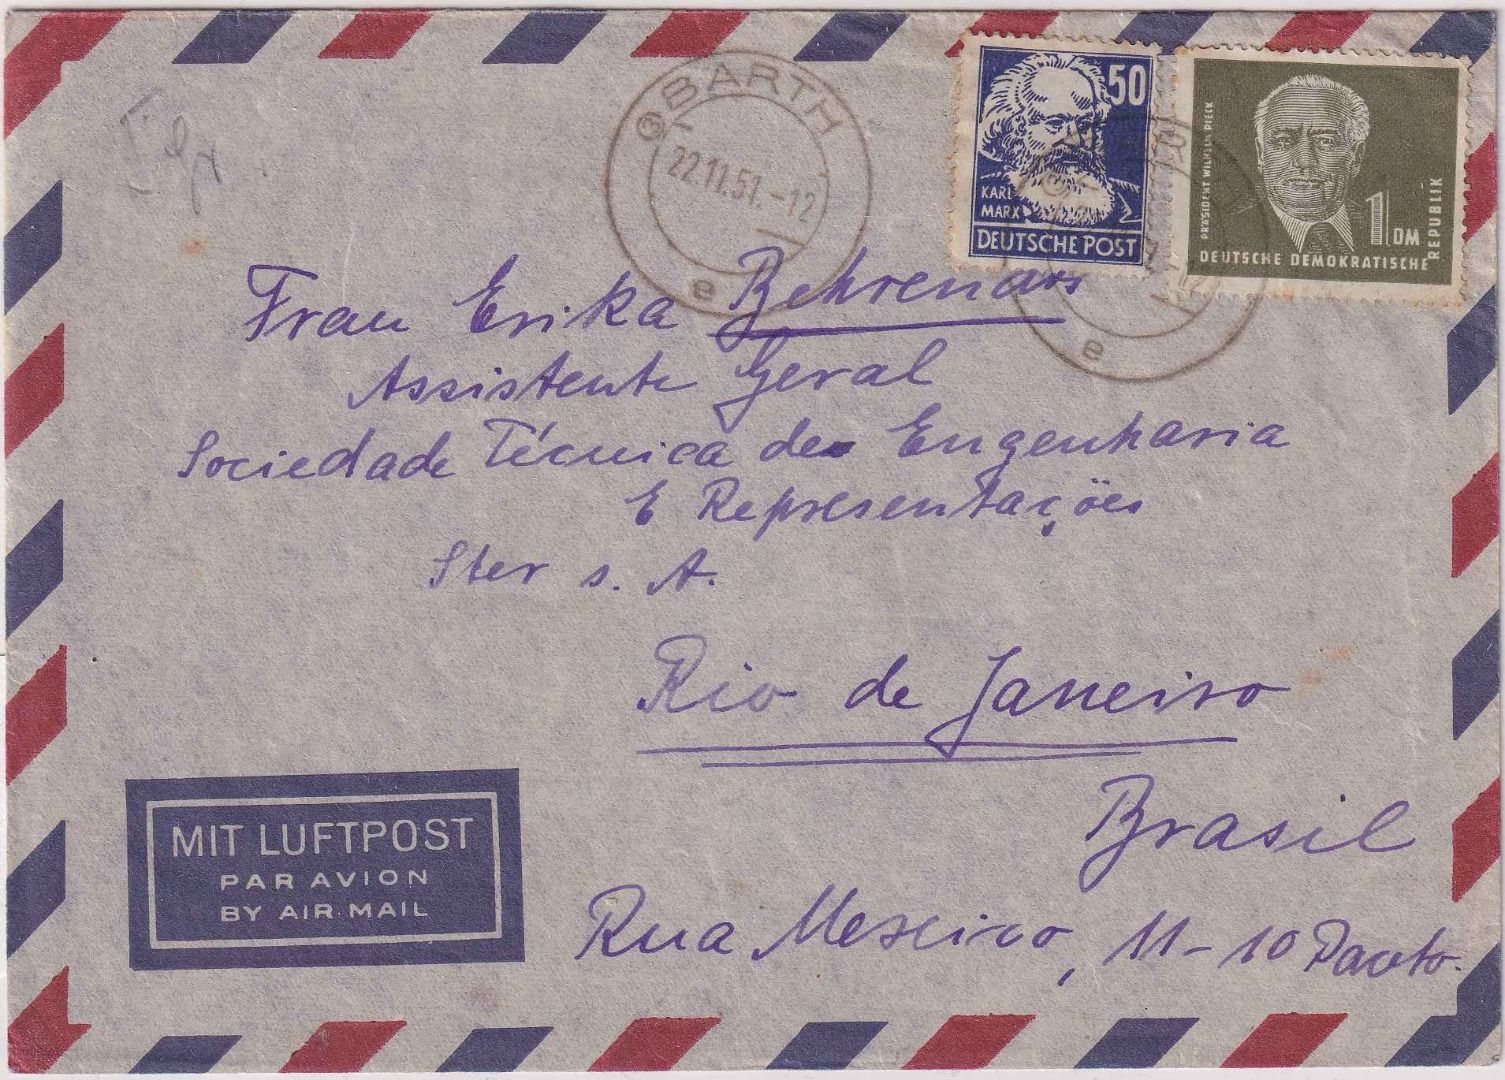 BARTH
22.11.51.-12
e
50
KARL
MARX
DEUTSCHE POST
PRÄSIDENT WILHELM PIECK
1 DM
DEUTSCHE DEMOKRATISCHE
REPUBLIK
e
Frau Erika Behrends
Assistente Geral
Sociedade Técnica de Engenharia
E Representações
Ster s. A.
Rio de Janeiro
Brasil
Rua Mexico, 11-10
MIT LUFTPOST
PAR AVION
BY AIR MAIL